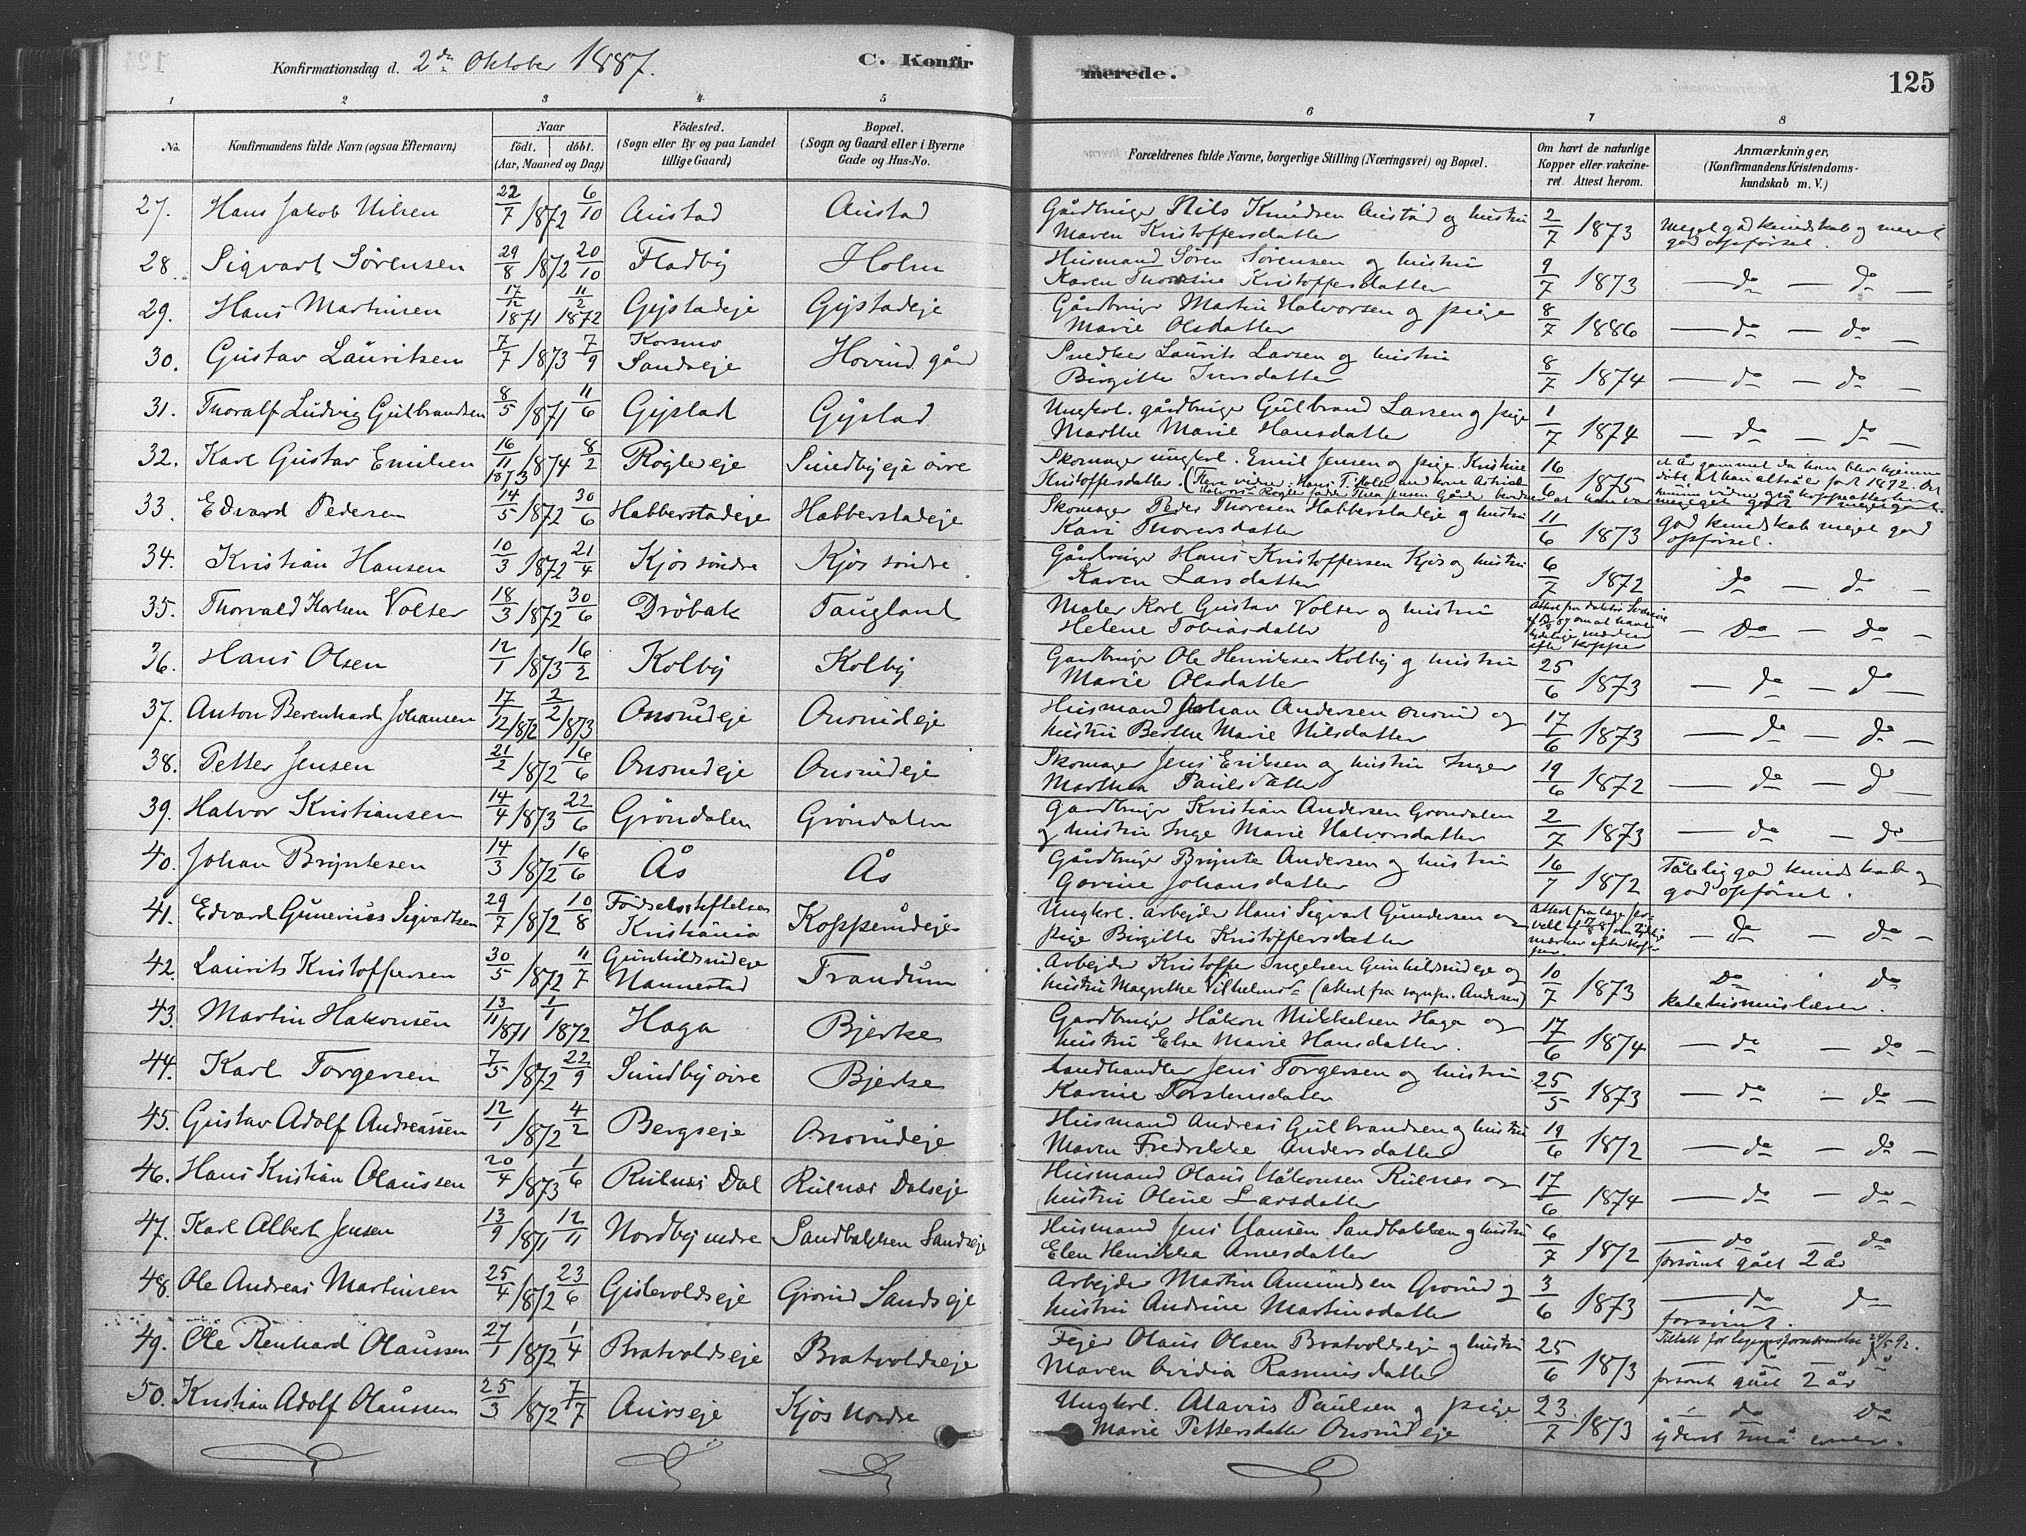 Konfirmationsdag d. 2den Oktober 1887.
C. Konfirmerede.
125
1 2 3 4 5 6 7 8
No.
Konfirmandens fulde Navn (ogsaa Efternavn)
Naar
födt. döbt.
(Aar, Maaned og Dag)
Födested.
(Sogn eller By og paa Landet tillige Gaard)
Bopæl.
(Sogn og Gaard eller i Byerne Gade og Hus-No.
Forældrenes fulde Navne, borgerlige Stilling (Næringsvei) og Bopæl.
Om havt de naturlige Kopper eller vakcineret Attest herom.
Anmærkninger,
(Konfirmandens Kristendomskundskab m. V.)
27. Hans Jakob Nilsen 22/7 1872 6/10 Austad Austad Gårdbruger Nils Knudsen Austad og hustru 2/7 1873 Meget god kundskab og meget
Maren Kristoffersdatter god opførsel.
28. Sigvart Sörensen 29/8 1872 20/10 Fladby Holm Husmand Sören Sörensen og hustru 9/7 1873 — do — do —
Karen Kristoffersdatter
29. Hans Martinsen 17/12 1871 11/2 1872 Gystadeje Gystadeje Gårdbruger Martin Halvorsen og pige 8/7 1886 — do — do
Marie Olsdatter
30. Gustav Lauritsen 7/7 1873 7/9 Korsmo Sandseje Hovind gård Snedker Laurits Larsen og hustru 8/7 1874 — do — do —
Birgitte Iversdatter
31. Thoralf Ludvig Gulbrandsen 8/5 1871 11/6 Gystad Gystad Ungkrl. gårdbruger Gulbrand Larsen og pige 1/7 1874 — do — do —
Marthe Marie Hansdatter
32. Karl Gustav Emilsen 16/11 1873 1874 8/2 Röglereje Sundbyeje övre Skomager ungkrl. Emil Jensen og pige Kristine 16/6 1875
Kristoffersdatter.
33. Edvard Pedersen 14/5 1872 30/6 Habberstadeje Habberstadeje Skomager Peder Thoresen Habberstadeje og hustru 11/6 1873 God kundskab meget god
Kari Thorersdatter opførsel.
34. Kristian Hansen 10/3 1872 21/4 Kjös söndre Kjös söndre. Gårdbruger Hans Kristoffersen Kjös og hustru 6/7 1872 do — do —
Karen Larsdatter
35. Thorvald Karlsen Volter 18/3 1872 30/6 Dröbak Taugland Maler Karl Gustav Volter og hustru — do — do —
Helene Tobiasdatter efter kopper
36. Hans Olsen 12/1 1873 16/2 Kolby Kolby Gårdbruger Ole Henriksen Kolby og hustru 25/6 1873 — do — do —
Marie Olsdatter
37. Anton Berenhard Johansen 17/12 1872 2/2 1873 Onsrudeje Onsrudeje Husmand Johan Andersen Onsrud og 17/6 1873 — do — do —
hustru Berthe Marie Nilsdatter
38. Petter Jensen 21/2 1872 16/6 Onsrudeje Onsrudeje Skomager Jens Eriksen og hustru Inger 19/6 1872 — do — do
Marthea Paulsdatter
39. Halvor Kristiansen 14/4 1873 22/6 Gröndalen Gröndalen Gårdbruger Kristian Andersen Gröndalen 2/7 1873 — do — do —
og hustru Inge Marie Halvorsdatter
40. Johan Bryntesen 14/3 1872 16/6 Ås Ås Gårdbruger Brynte Andersen og hustru 16/7 1872 Tålelig god kundskab og
Gorine Johansdatter god opførsel.
41. Edvard Gunerius Sigvartsen 29/7 1872 10/8 Födselsstiftelsen Kristiania Kopperudeje Ungkrl. arbejder Hans Sigvart Gundersen og — do — do —
pige Birgitte Kristoffersdatter
42. Laurits Kristoffersen 30/5 1872 11/7 Gunhildrudeje Nannestad Trandum Arbejder Kristoffer Ingelsen Gunhildsrudeje og 10/7 1873 Do do
hustru Magrethe Vilhelmsd. (attest fra sognpr. Andersen) katekismuslæser.
43. Martin Hakonsen 13/11 1871 1/1 1872 Haga Bjerke Gårdbruger Håkon Mikkelsen Haga og 17/6 1874 — do — do —
hustru Else Marie Hansdatter.
44. Karl Torgersen 7/5 1872 22/9 Sundby övre Bjerke Landhandler Jens Torgersen og hustru 25/5 1873 — do — do —
Karine Torstensdatter
45. Gustav Adolf Andreassen 12/1 1872 4/2 Bergseje Onsrudeje Husmand Andreas Gulbrandsen og hustru 19/6 1872 — do — do —
Maren Fredrikke Andersdatter
46. Hans Kristian Olaussen 20/4 1873 1/6 Rulnæs Dal Rulnæs Dalseje Husmand Olaus Håkonsen Rulnæs og 17/6 1874 — do — do —
hustru Oline Larsdatter
47. Karl Albert Jensen 13/9 1871 12/11 Nordby nedre Sandbakken Sandseje Husmand Jens Hansen Sandbakken og hustru 6/7 1872 — do — do
Elen Henrikka Arnesdatter forsömt gået 2 år
48. Ole Andreas Martinsen 25/4 1872 23/6 Gislevoldseje Grorud Sandseje Arbejder Martin Amundsen Grorud og 3/6 1873 — do do
hustru Andrine Martinsdatter forsömt.
49. Ole Renhard Olaussen 27/1 1872 1/4 Bratvoldseje Bratvoldseje Fejer Olaus Olsen Bratvoldseje og hustru 25/6 1873
Maren Rasmusdatter forsömt gået 2 år
50. Kristian Adolf Olaussen 25/3 1872 7/7 Aurseje Kjös Nordre Ungkrl. Olavus Paulsen og pige 23/7 1873 — do do
Marie Pettersdatter Onsrudeje yderst små evner.